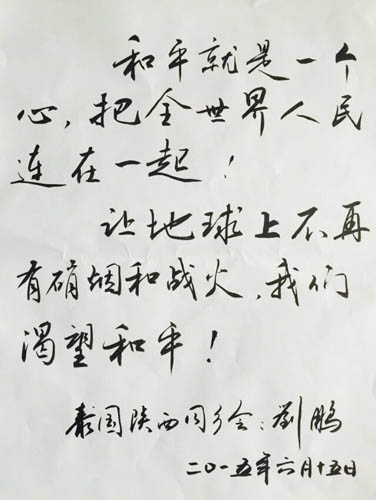 和平就是一个
心，把全世界人民
连在一起！
让地球上不再
有硝烟和战火，我们
渴望和平！
泰国陕西同乡会：刘鹏
二〇一五年六月十五日